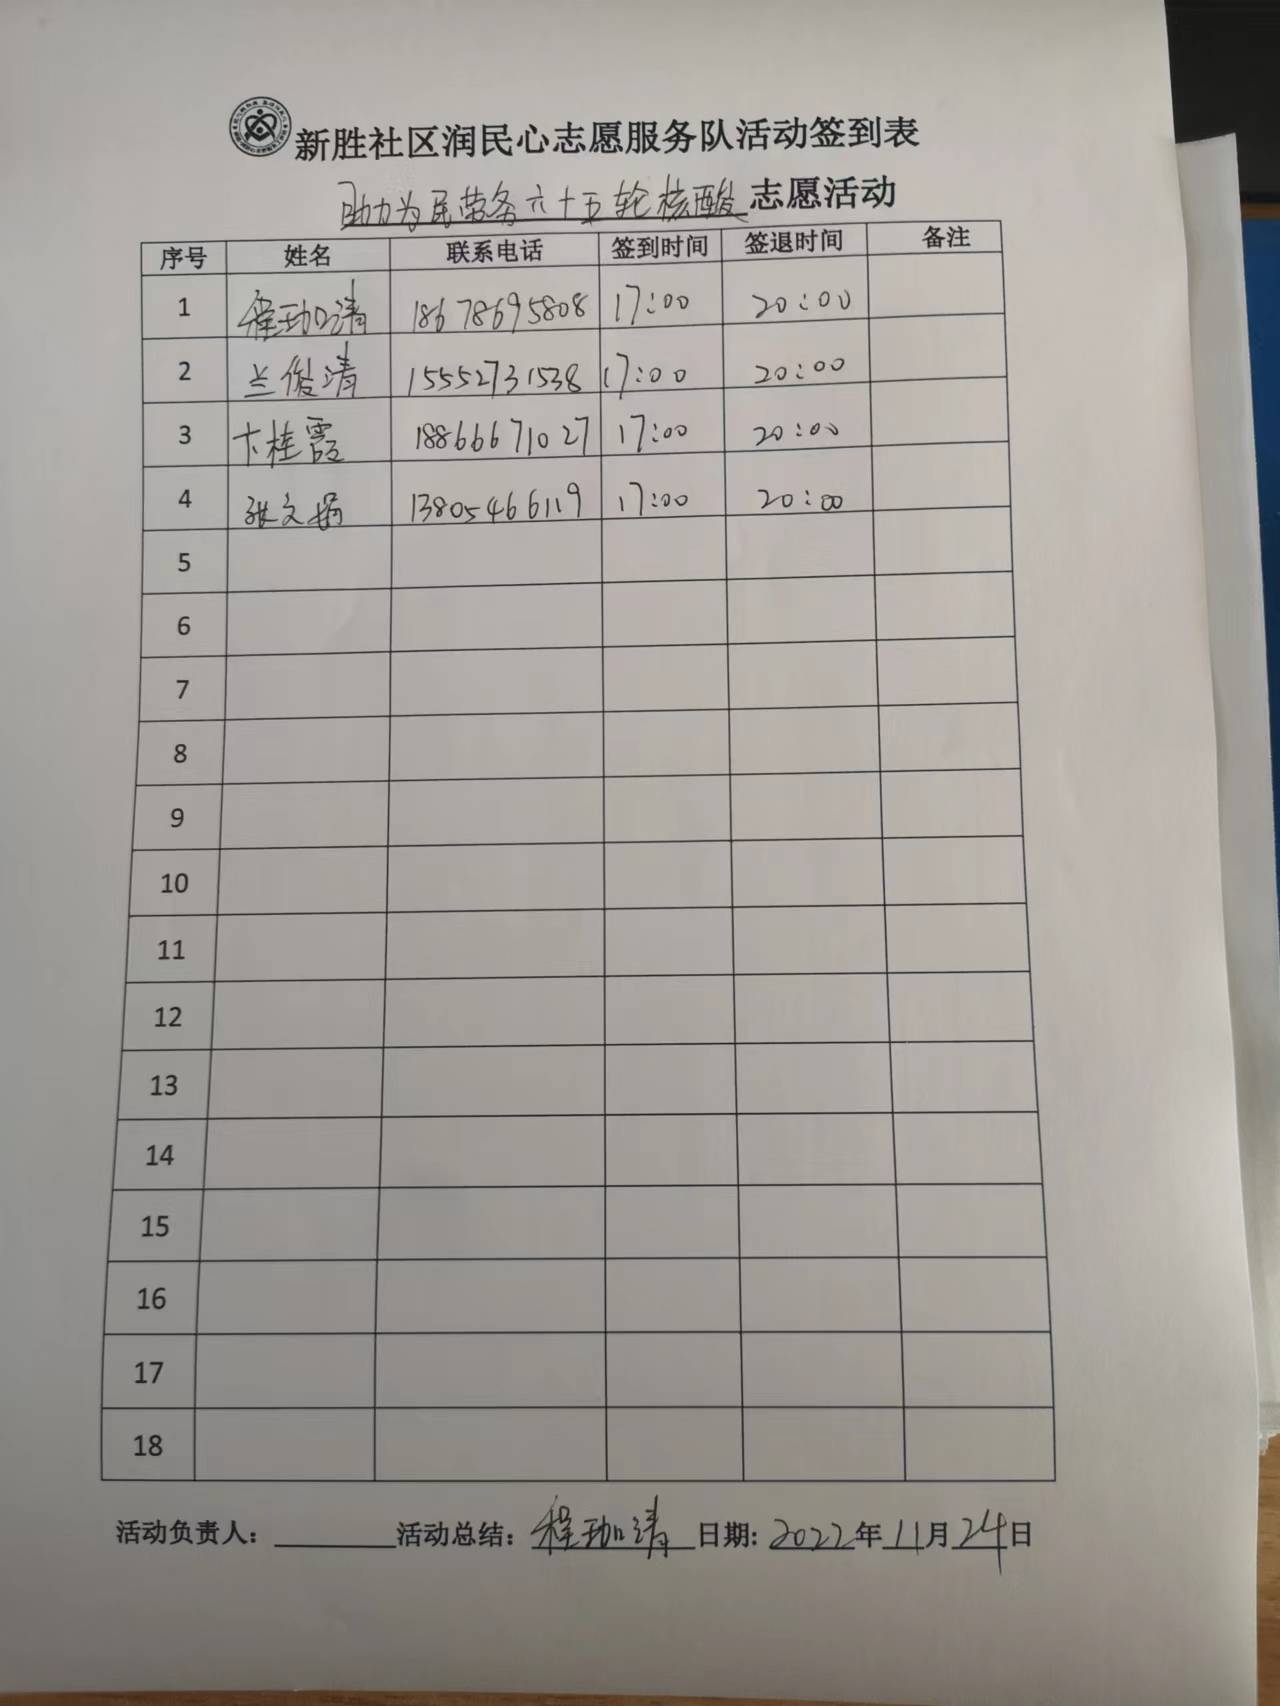 新胜社区润民心志愿服务队活动签到表
助力为民劳务六十五轮核酸志愿活动
序号 姓名 联系电话 签到时间 签退时间 备注
1 程珈清 18678695808 17:00 20:00
2 兰俊清 15552731538 17:00 20:00
3 卞桂霞 18866671027 17:00 20:00
4 张文娟 13805466119 17:00 20:00
5
6
7
8
9
10
11
12
13
14
15
16
17
18
活动负责人: 活动总结: 程珈清 日期: 2022年11月24日